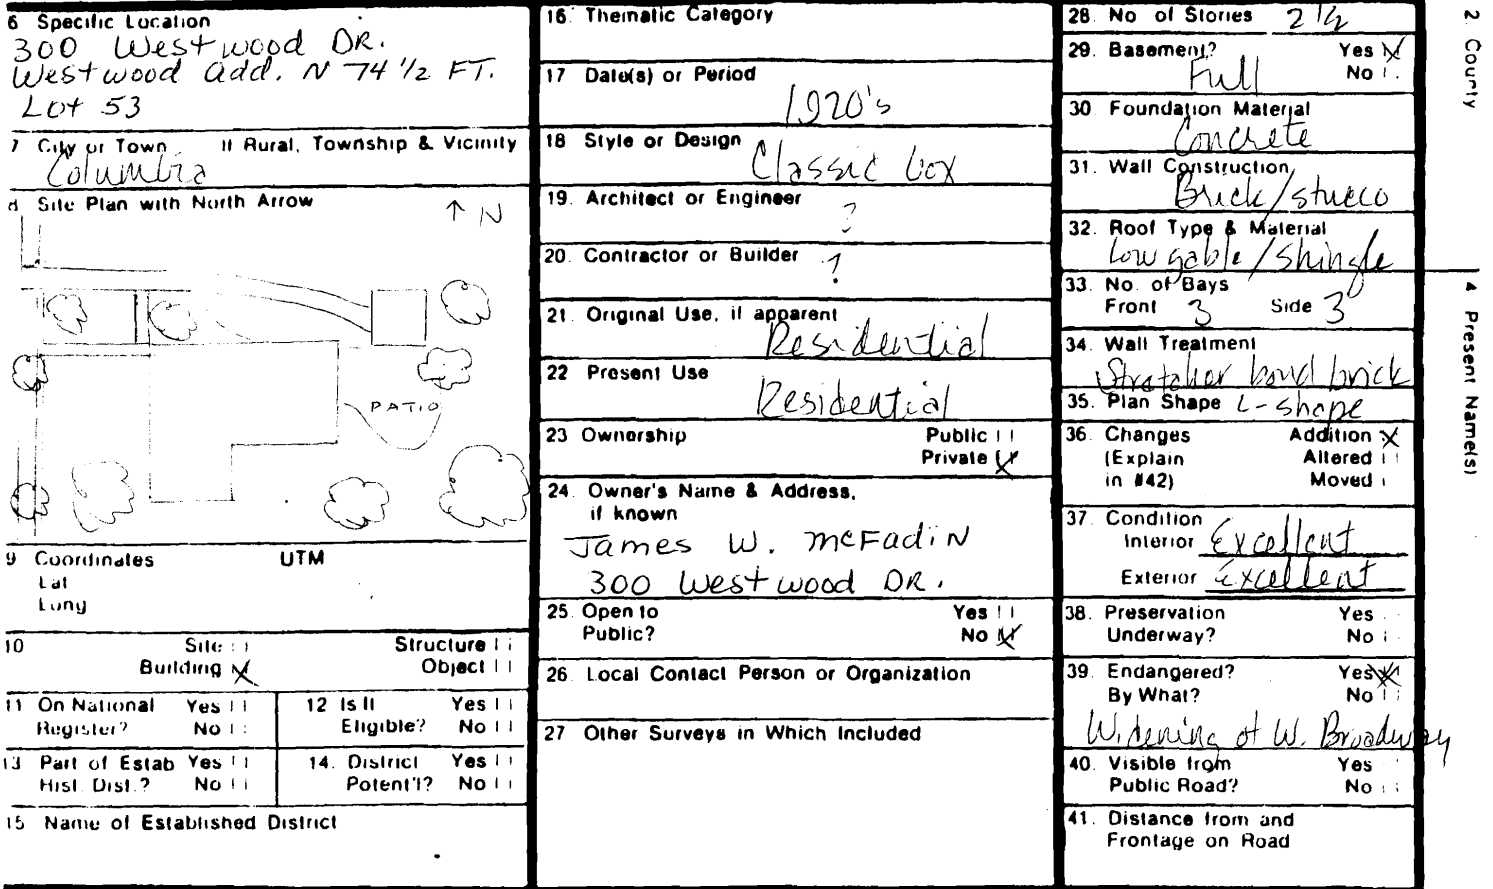 6 Specific Location
300 Westwood DR.
Westwood Add. N 74 1/2 FT.
Lot 53
7 City or Town If Rural, Township & Vicinity
Columbia
8 Site Plan with North Arrow
↑ N
PATIO
9 Coordinates UTM
Lat
Long
10 Site
Structure
Building X
Object
11 On National Register? Yes No
12 Is It Eligible? Yes No
13 Part of Estab Hist. Dist.? Yes No
14. District Potent'l? Yes No
15 Name of Established District
16. Thematic Category
17 Date(s) or Period
1920's
18 Style or Design
Classic box
19. Architect or Engineer
?
20. Contractor or Builder
?
21. Original Use, if apparent
Residential
22 Present Use
Residential
23 Ownership Public
Private X
24. Owner's Name & Address,
if known
James W. McFadin
300 Westwood DR.
25. Open to Yes
Public? No X
26. Local Contact Person or Organization
27 Other Surveys in Which Included
28. No of Stories 2 1/2
29. Basement? Yes X
Full No
30. Foundation Material
Concrete
31. Wall Construction
Brick/stucco
32. Roof Type & Material
Low gable/shingle
33. No. of Bays
Front 3 Side 3
34. Wall Treatment
Stretcher bond brick
35. Plan Shape L-shape
36. Changes Addition X
(Explain Altered
in #42) Moved
37. Condition
Interior Excellent
Exterior Excellent
38. Preservation Yes
Underway? No
39. Endangered? Yes X
By What? No
Widening of W. Broadway
40. Visible from Yes
Public Road? No
41. Distance from and
Frontage on Road
2 County
4 Present Name(s)